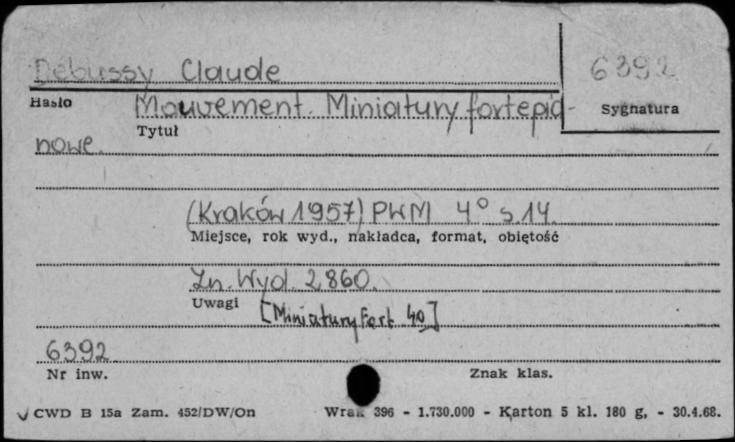 Debussy Claude
6392
Hasło
Mouvement. Miniatury fortepia-
Sygnatura
Tytuł
nowe.
(Kraków 1957) PWM 4° s. 14.
Miejsce, rok wyd., nakładca, format, objętość
Zn. Wyd. 2860.
Uwagi
[Miniatury Fort. 40]
6392
Nr inw.
Znak klas.
CWD B 15a Zam. 452/DW/On
396 - 1.730.000 - Karton 5 kl. 180 g, - 30.4.68.